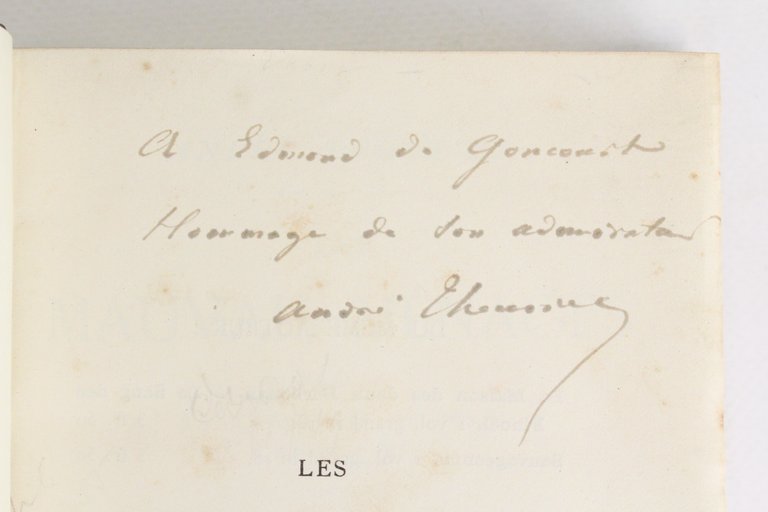 A Edmond de Goncourt
Hommage de son admirateur
André Theuriet
LES